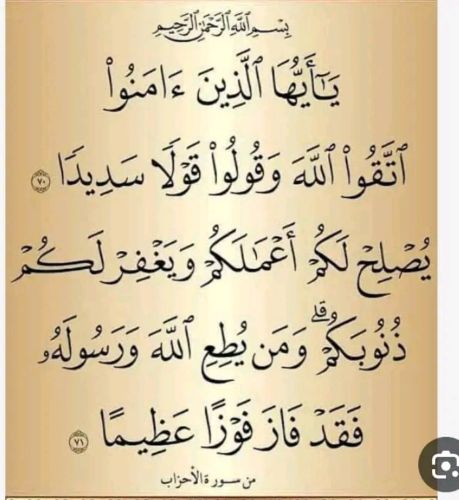 بِسْمِ اللَّهِ الرَّحْمَٰنِ الرَّحِيمِ
يَـٰٓأَيُّهَا ٱلَّذِينَ ءَامَنُوا۟
ٱتَّقُوا۟ ٱللَّهَ وَقُولُوا۟ قَوْلًا سَدِيدًا ٧٠
يُصْلِحْ لَكُمْ أَعْمَـٰلَكُمْ وَيَغْفِرْ لَكُمْ
ذُنُوبَكُمْ ۗ وَمَن يُطِعِ ٱللَّهَ وَرَسُولَهُۥ
فَقَدْ فَازَ فَوْزًا عَظِيمًا ٧١
من سورة الأحزاب